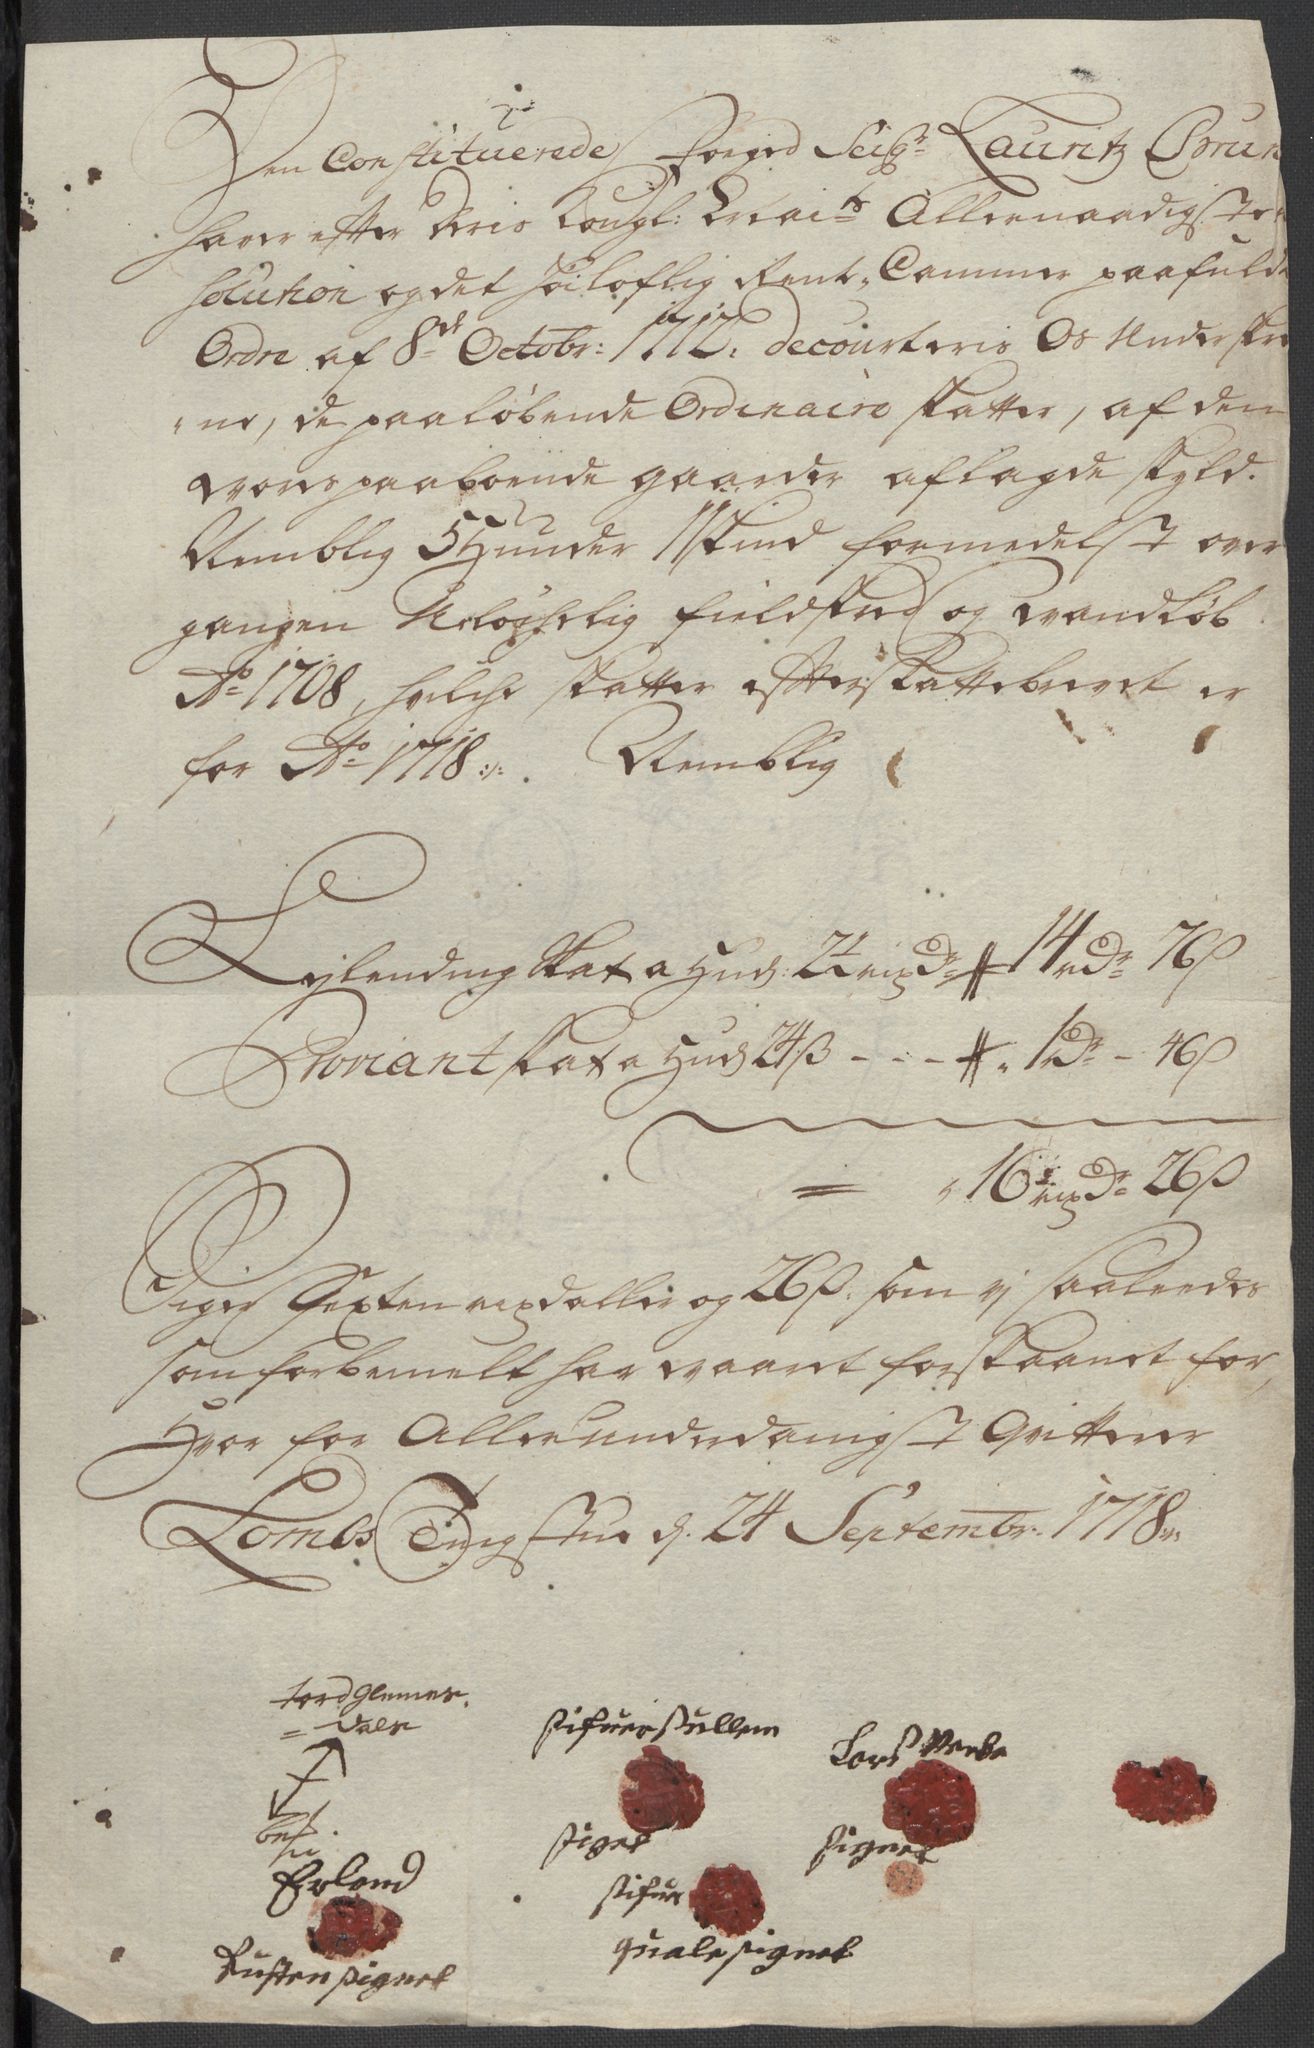 Den Constituerede Foeged Seigr Lauritz Brun
haver efter Deris Kongl: Mai:ts Allernaadigste re-
solution og det høiloflig Rent-Cammer paafuldte
Ordre af 8de Octobr: 1712. decourteris Os Underskre
ne, de paaløbende Ordinaire skatter, af den
voris paaboende gaarder aflagde skyld.
Nemblig 5 Hunder 11 skind formedelst over
gangen Uløchelig fieldskred og vandløb
Ao 1708, hvilche skatter efter skattebrevet er
for Ao 1718:/: Nemblig
Leylending Skat a Hud: 2½ rixdr # 14 rdr 76 ß
Proviant skat a Hud 24 ß - - - # 1 rdr - 46 ß
= 16 rixdr 26 ß
Siger Sexten rixdaller og 26 ß. som vj saaledes
som forbemelt har vaaret forskaanet for,
Hvor for Allerunderdanigst Qvitterer
Lombs Tingstue d. 24 Septembr: 1718
tord glemes
= dals
sifuer sullem
Lars Norbe
be
siget
signet
Erland
sifuer
Rusten signet
quale signet